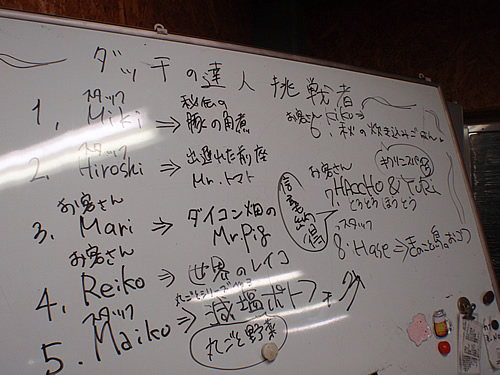 ダッチの達人 挑戦者
スタッフ
1, Miki ⇒ 秘伝の
豚の角煮
スタッフ
2. Hiroshi ⇒ 出遅れた前座
Mr.トマト
お客さん
3. Mari ⇒ ダイコン畑の
Mr.Pig
お客さん
4. Reiko ⇒ 世界のレイコ
スタッフ
5. Maiko ⇒ 減塩ポトフ
丸ごと野菜
お客さん
6. kiko ⇒
秋の炊き込みごはん
お客さん
7. HACCHO & YURi
とうとう ほうとう
スタッフ
8. Hase ⇒ きのこと鳥の